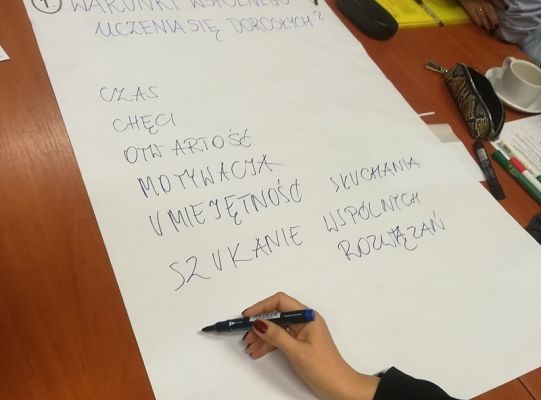 4. WARUNKI WSPÓLNEGO
UCZENIA SIĘ DOROSŁYCH?
CZAS
CHĘCI
OTWARTOŚĆ
MOTYWACJA
UMIEJĘTNOŚĆ SŁUCHANIA
SZUKANIE WSPÓLNYCH
ROZWIĄZAŃ